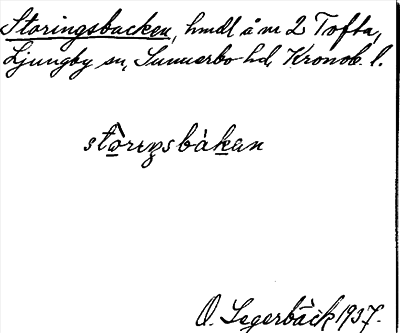 Storingsbacken, hmdl å nr 2 Tofta,
Ljungby sn, Sunnerbo hd, Kronob. l.
stòriŋsbàkan
O. Segerbäck 1937.